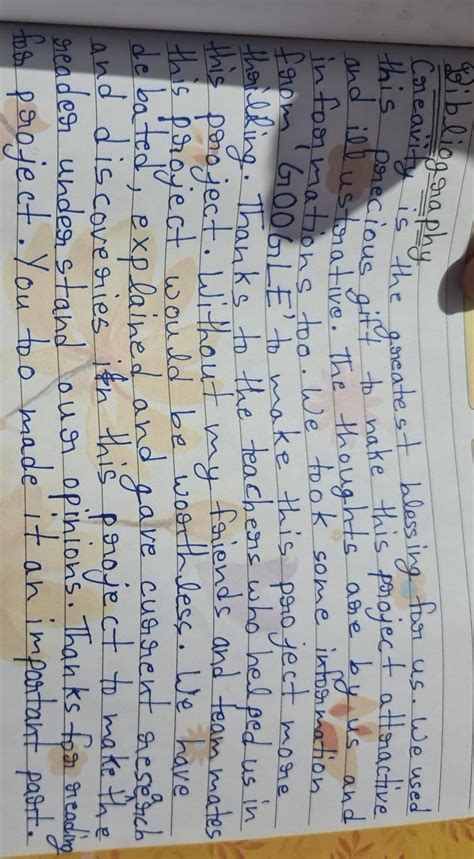 Bibliography
Creativity is the greatest blessing for us. We used
this precious gift to make this project attractive
and illustrative. The thoughts are by us and
informations too. We took some information
from 'GOOGLE' to make this project more
thrilling. Thanks to the teachers who helped us in
this project. Without my friends and team mates
this project would be worthless. We have
debated, explained and gave current research
and discoveries in this project to make the
reader understand our opinions. Thanks for reading
for project. You too made it an important part.